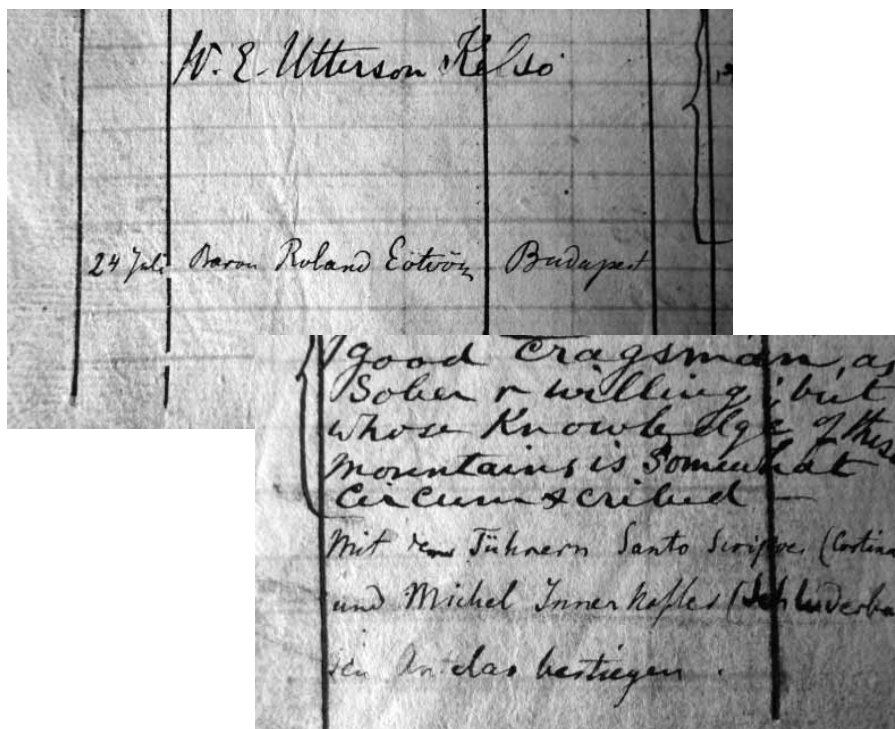 W. E. Utterson Kelso
24 Juli Baron Roland Eötvös Budapest
good Cragsman, as
Sober & willing; but
whose Knowledge of these
mountains is Somewhat
Circumscribed —
Mit den Führern Santo (Cortina
und Michel Innerkofler (Schluderba
den Antelao bestiegen.